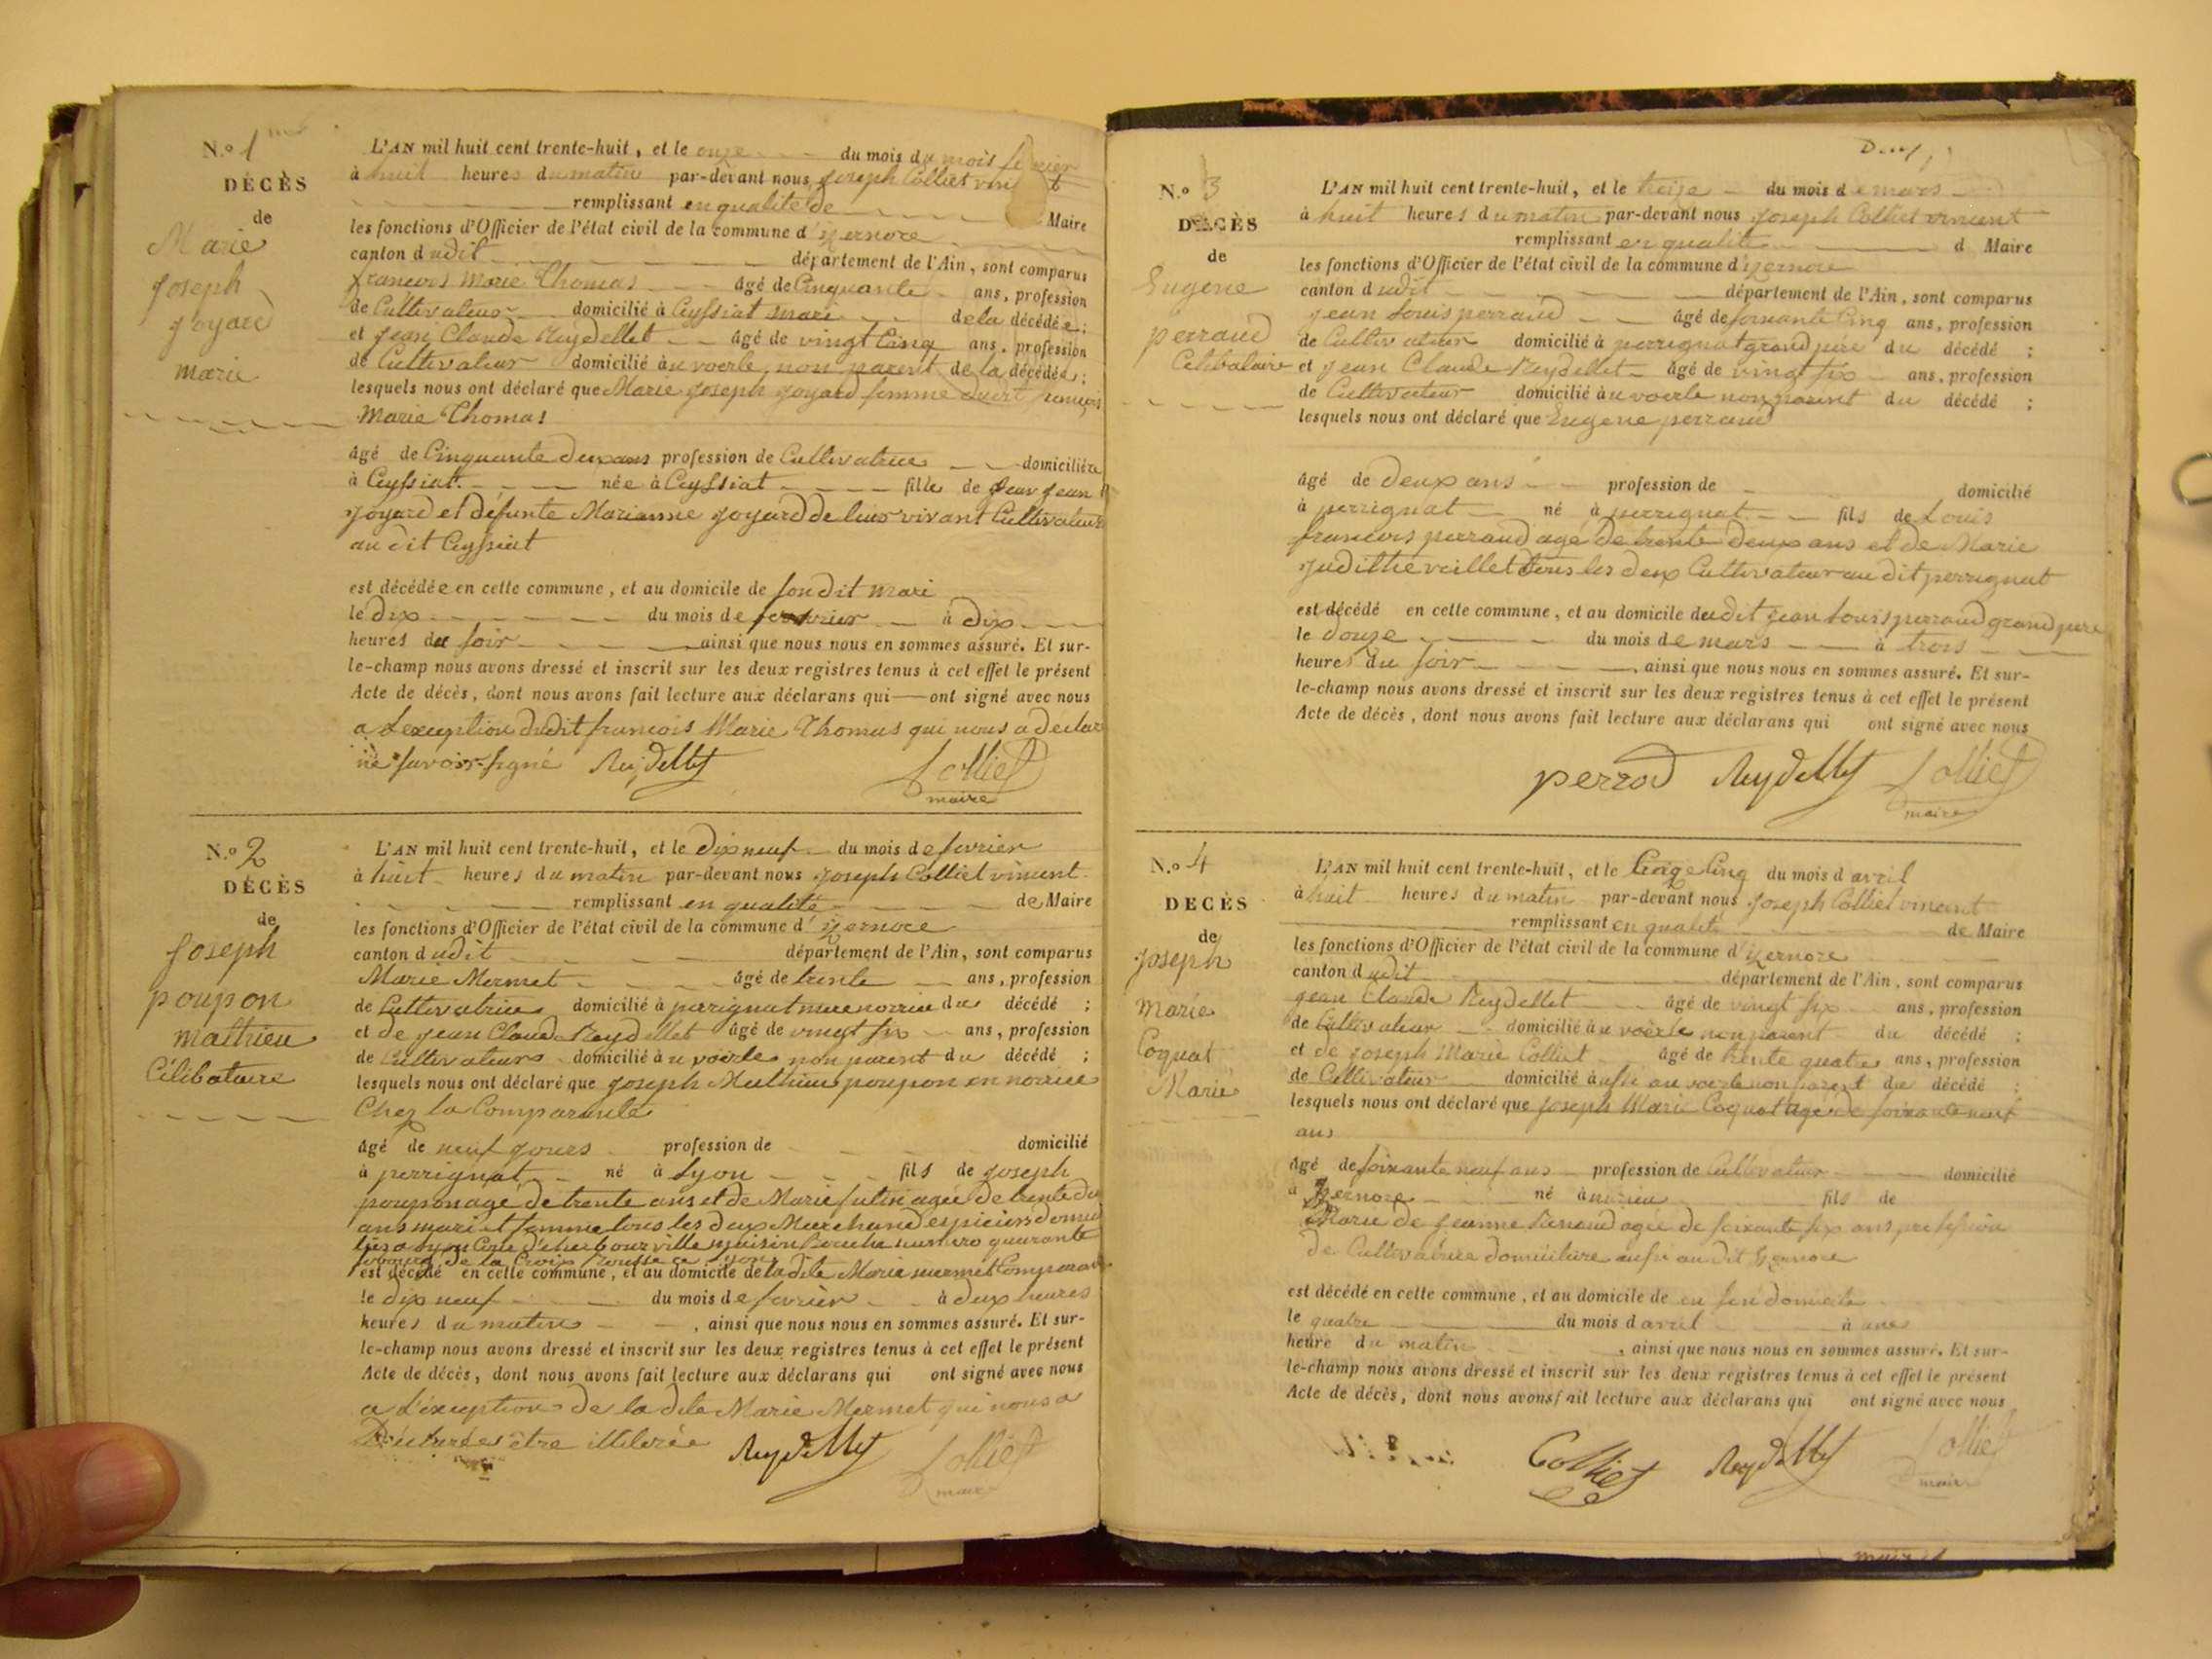 N.o 1
DÉCÈS
de
Marie
Joseph
goyard
marie
L'AN mil huit cent trente-huit, et le onze du mois du mois
à huit heures du matin par-devant nous Joseph Colliet
remplissant en qualité de Maire
les fonctions d'Officier de l'état civil de la commune d'izernore
canton dudit département de l'Ain, sont comparus
francois Marie Thomas âgé de Cinquante ans, profession
de Cultivateur domicilié à Ceyssiat mari de la décédée ;
et Jean Claude Reydellet âgé de vingt Cinq ans, profession
de Cultivateur domicilié au voerle non parent de la décédée ;
lesquels nous ont déclaré que Marie Joseph goyard femme dudit francois
Marie Thomas
âgé de Cinquante deux ans profession de Cultivatrice domicilière
à Ceyssiat née à Ceyssiat fille de feu Jean
goyard et défunte Marianne goyard de leur vivant Cultivateurs
au dit Ceyssiat
est décédée en cette commune, et au domicile de son dit mari
le dix du mois de fevrier à dix
heures du soir ainsi que nous nous en sommes assuré. Et sur-
le-champ nous avons dressé et inscrit sur les deux registres tenus à cet effet le présent
Acte de décès, dont nous avons fait lecture aux déclarans qui ont signé avec nous
a l'exception dudit francois Marie Thomas qui nous a declaré
ne savoir signé Reydellet Colliet
maire
N.o 2
DÉCÈS
de
Joseph
poupon
mathieu
Célibataire
L'AN mil huit cent trente-huit, et le dix neuf du mois de fevrier
à huit heures du matin par-devant nous Joseph Colliet vincent
remplissant en qualité de Maire
les fonctions d'Officier de l'état civil de la commune d'izernore
canton dudit département de l'Ain, sont comparus
Marie Mermet âgé de trente ans, profession
de Cultivatrice domicilié à perrignat du décédé ;
et de Jean Claude Reydellet âgé de vingt six ans, profession
de Cultivateur domicilié au voerle non parent du décédé ;
lesquels nous ont déclaré que Joseph Mathieu poupon en norrice
Chez la Comparante
âgé de neuf jours profession de domicilié
à perrignat né à Lyon fils de Joseph
poupon agé de trente ans et de Marie futin agée de trente
ans mari et femme tous les deux Marchand espiciers
numero quarante
de la Croix Rousse
est décédé en cette commune, et au domicile de la dite Marie mermet Comparante
le dix neuf du mois de fevrier à deux heures
heures du matin, ainsi que nous nous en sommes assuré. Et sur-
le-champ nous avons dressé et inscrit sur les deux registres tenus à cet effet le présent
Acte de décès, dont nous avons fait lecture aux déclarans qui ont signé avec nous
a l'exception de la dite Marie Mermet qui nous a
être illiterée Reydellet Colliet
maire
N.o 3
DÉCÈS
de
Eugene
perraud
Célibataire
L'AN mil huit cent trente-huit, et le treize du mois de mars
à huit heures du matin par-devant nous Joseph Colliet vincent
remplissant en qualité d Maire
les fonctions d'Officier de l'état civil de la commune d'izernore
canton dudit département de l'Ain, sont comparus
Jean Louis perraud âgé de soixante Cinq ans, profession
de Cultivateur domicilié à perrignat grand pere du décédé ;
et Jean Claude Reydellet âgé de vingt six ans, profession
de Cultivateur domicilié au voerle non parent du décédé ;
lesquels nous ont déclaré que Eugene perraud
âgé de deux ans profession de domicilié
à perrignat né à perrignat fils de Louis
francois perraud agé de trente deux ans et de Marie
Judithe veillet tous les deux Cultivateur au dit perrignat
est décédé en cette commune, et au domicile dudit Jean Louis perraud grand pere
le douze du mois de mars à trois
heures du soir ainsi que nous nous en sommes assuré. Et sur-
le-champ nous avons dressé et inscrit sur les deux registres tenus à cet effet le présent
Acte de décès, dont nous avons fait lecture aux déclarans qui ont signé avec nous
perrod Reydellet Colliet
maire
N.o 4
DECÈS
de
Joseph
Marie
Coquat
Marié
L'AN mil huit cent trente-huit, et le Cinq du mois d'avril
à huit heures du matin par-devant nous Joseph Colliet vincent
remplissant en qualité de Maire
les fonctions d'Officier de l'état civil de la commune d'izernore
canton dudit département de l'Ain, sont comparus
Jean Claude Reydellet âgé de vingt six ans, profession
de Cultivateur domicilié au voerle non parent du décédé ;
et de Joseph Marie Colliet âgé de trente quatre ans, profession
de Cultivateur domicilié aussi au voerle non parent du décédé ;
lesquels nous ont déclaré que Joseph Marie Coquat agé de soixante neuf
ans
âgé de soixante neuf ans profession de Cultivateur domicilié
à Izernore né à fils de
Marie de Jeanne Renaud agée de soixante six ans profession
de Cultivatrice domiciliere aussi au dit Izernore
est décédé en cette commune, et au domicile de en son domicile
le quatre du mois d'avril à une
heure du matin, ainsi que nous nous en sommes assuré. Et sur-
le-champ nous avons dressé et inscrit sur les deux registres tenus à cet effet le présent
Acte de décès, dont nous avons fait lecture aux déclarans qui ont signé avec nous
Colliet Reydellet Colliet
maire